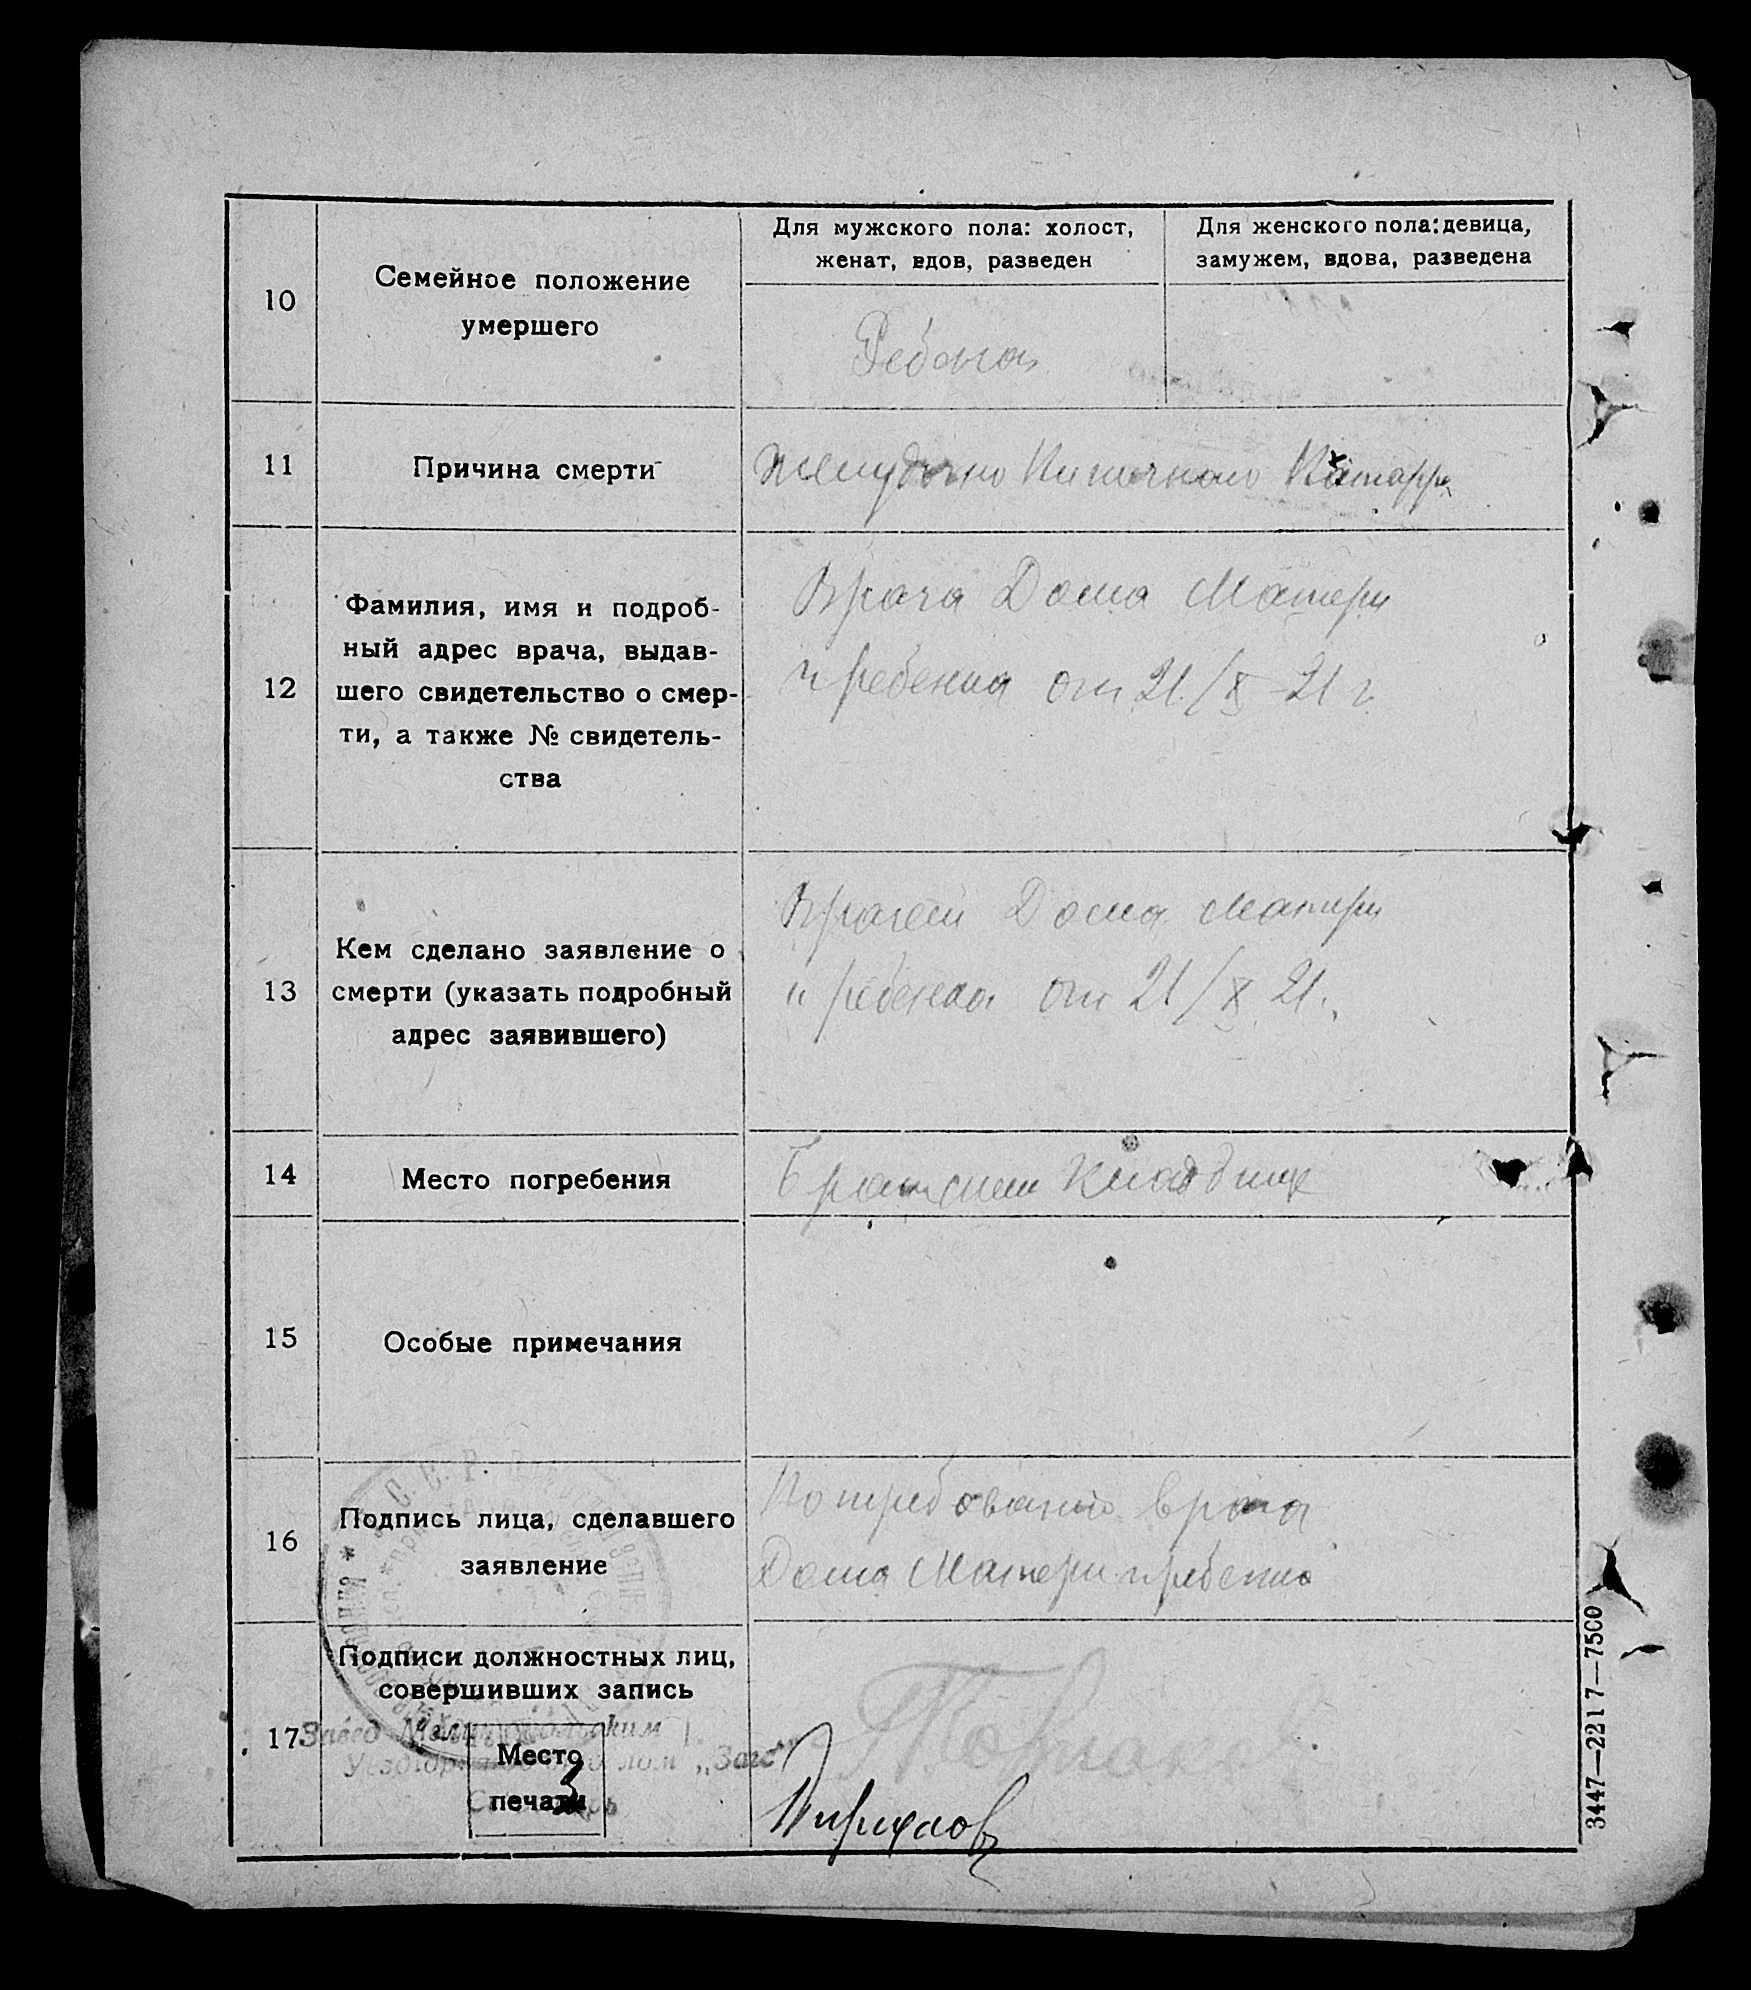 10
Семейное положение
умершего
Для мужского пола: холост,
женат, вдов, разведен
Для женского пола: девица,
замужем, вдова, разведена
Ребенок
11
Причина смерти
Желудочно Кишечного Катарра
12
Фамилия, имя и подроб-
ный адрес врача, выдав-
шего свидетельство о смер-
ти, а также № свидетель-
ства
Врача Дома Матери
и ребенка от 21/X 21 г.
13
Кем сделано заявление о
смерти (указать подробный
адрес заявившего)
Врачем Дома Матери
и ребенка от 21/X 21.
14
Место погребения
Братским Кладбище
15
Особые примечания
16
Подпись лица, сделавшего
заявление
По требованию врача
Дома Матери и ребенка
17
Подписи должностных лиц,
совершивших запись
Место
печати
„Загс“
3447—2217—7500